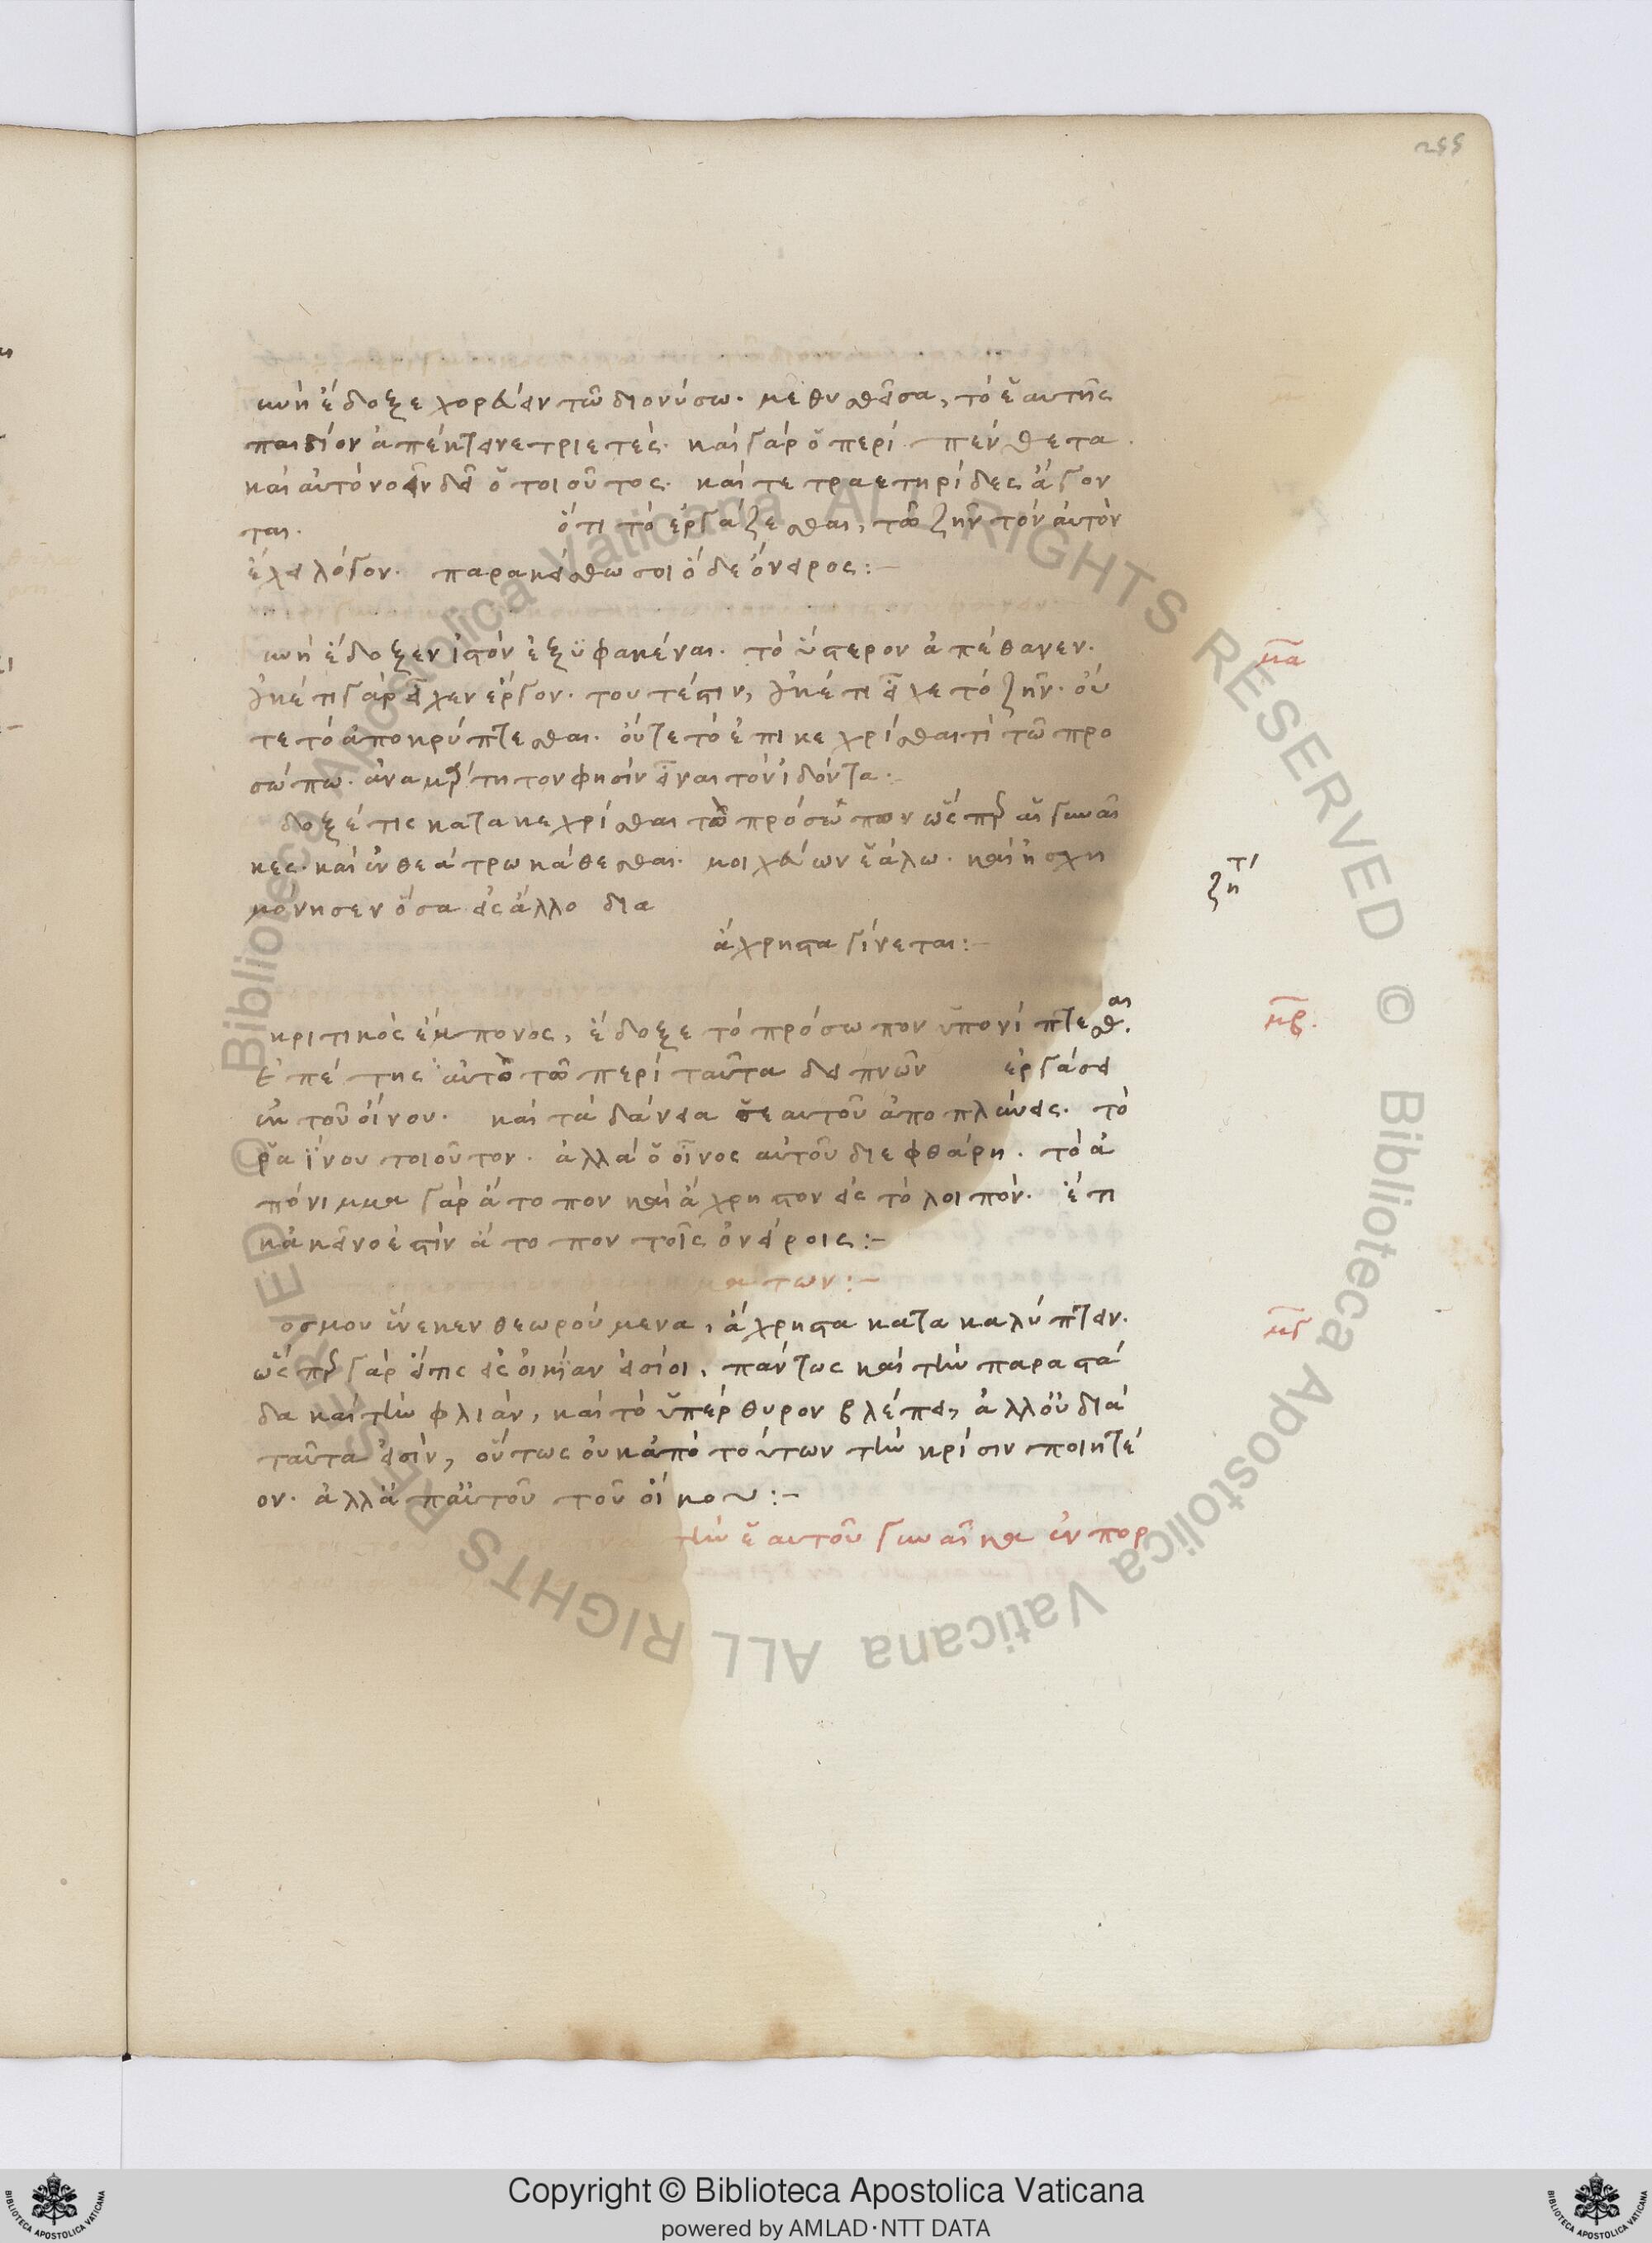 255
υνὴ ἔδοξε χορεύειν τῶ διονύσω. μεθυσθεῖσα, τὸ ἑαυτῆς
παιδίον ἀπέκτεινε τριετές. καὶ γὰρ ὁ περὶ πενθέα
καὶ αὐτονόην δεῖ ὁ τοιοῦτος. καὶ τετραετηρίδες ἄγον
ται. ὅτι τὸ ἐργάζεσθαι, τῶ ζῆν τὸν αὐτὸν
ἔχει λόγον. παρακείσθω σοι ὁ δε ὄνειρος:-
υνὴ ἔδοξεν ἱστὸν ἐξυφακέναι. τὸ ὕστερον ἀπέθανεν.
οὐκέτι γὰρ εἶχεν ἔργον. τουτέστιν, οὐκέτι εἶχε τὸ ζῆν. οὔ
τε τὸ ἀποκρύπτεσθαι. οὔτε τὸ ἐπικεχρίσθαι τὶ τῶ προ
σώπω. ἀναμάρτητον φησὶν εἶναι τὸν ἰδόντα.
δοξέ τις κατακεχρίσθαι τὸ πρόσωπον ὥσπερ αἱ γυναῖ
κες. καὶ ἐν θεάτρω κάθεσθαι. μοιχεύων ἑάλω. καὶ ἠσχη
μόνησεν ὅσα εἰς ἄλλο δια
ἄχρηστα γίνεται:-
κριτικὸς ἔμπονος, ἔδοξε τὸ πρόσωπον ὑπονίπτεσθαι.
ἐπέστης αὐτὸ τῶ περὶ ταῦτα δειπνῶν ἐργάσει
ἐκ τοῦ οἴνου. καὶ τὰ δάνεια σε αυτοῦ ἀποπλύνεις. τὸ
ῥαΐνου τοιοῦτον. ἀλλὰ ὁ οἶνος αὐτοῦ διεφθάρη. τὸ ἀ
πόνιμμα γὰρ ἄτοπον καὶ ἄχρηστον εἰς τὸ λοιπόν. ἔτι
κἀκεῖνο ἐστὶν ἄτοπον τοῖς ὀνείροις:-
ματων:-
οσμου ἕνεκεν θεωρούμενα, ἄχρηστα κατακαλύπτειν.
ὥσπερ γὰρ εἴ τις εἰς οἰκίαν εἰσίοι, πάντως καὶ τὴν παραστά
δα καὶ τὴν φλιάν, καὶ τὸ ὑπέρθυρον βλέπει, ἀλλ οὐ διὰ
ταῦτα εἴσιν, οὕτως οὐκ ἀπὸ τούτων τὴν κρίσιν ποιητέ
ον. ἀλλ ἀπ αὐτοῦ τοῦ οἴκου:-
τὴν ἑαυτοῦ γυναῖκα ἐν πορ
μα
ζητ
μβ.
μγ
Copyright © Biblioteca Apostolica Vaticana
powered by AMLAD·NTT DATA
© Biblioteca Apostolica Vaticana ALL RIGHTS RESERVED © Biblioteca Apostolica Vaticana ALL RIGHTS RESERVED
BIBLIOTECA APOSTOLICA VATICANA
BIBLIOTECA APOSTOLICA VATICANA